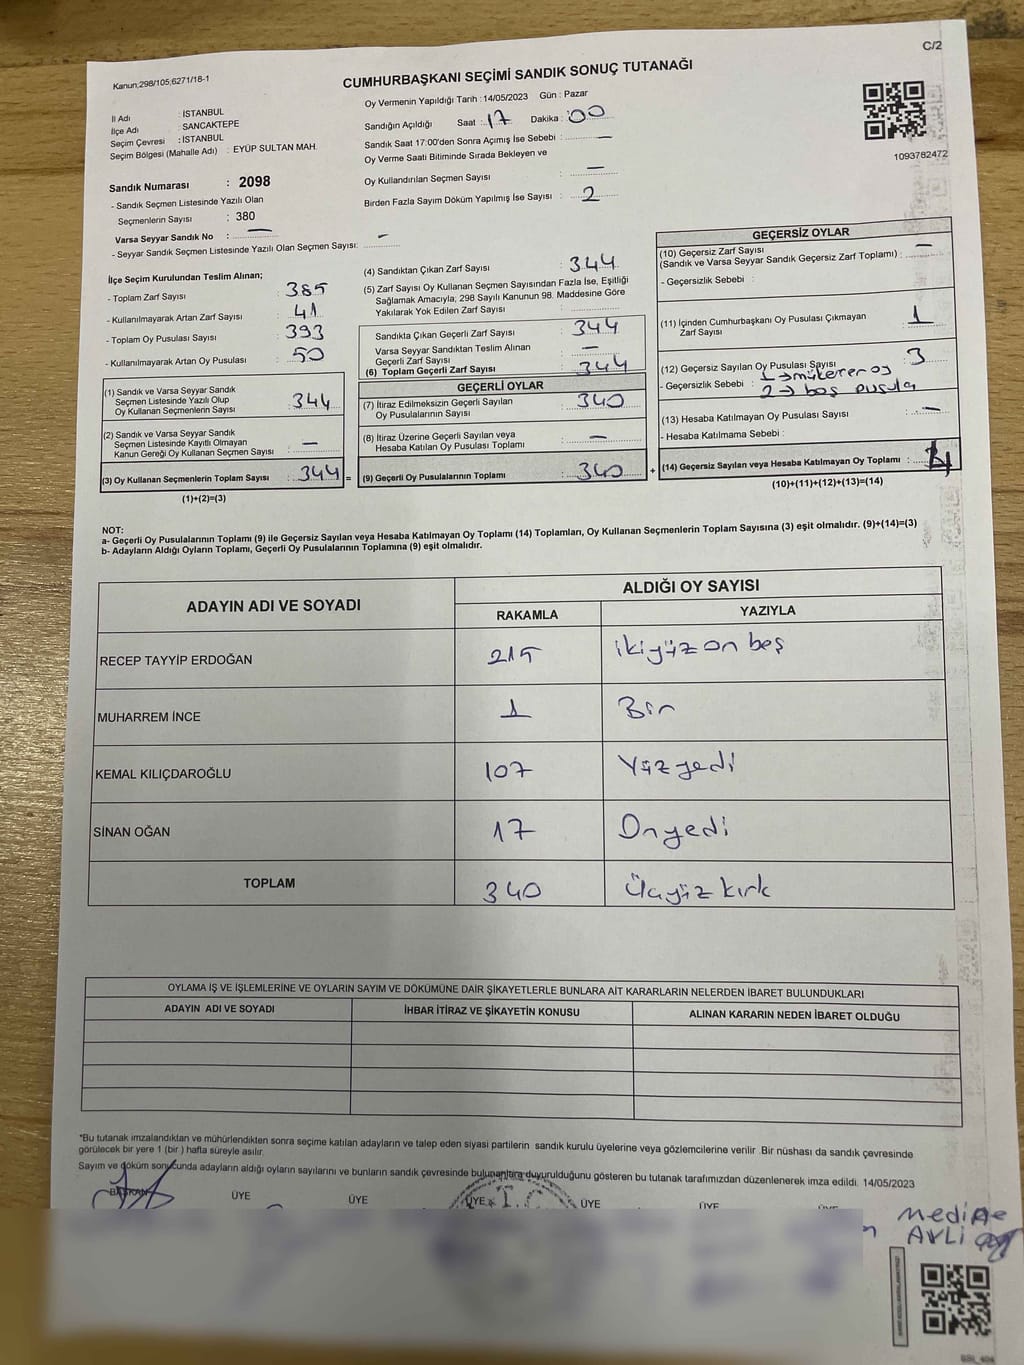 C/2
Kanun;298/105;6271/18-1
CUMHURBAŞKANI SEÇİMİ SANDIK SONUÇ TUTANAĞI
Oy Vermenin Yapıldığı Tarih : 14/05/2023 Gün : Pazar
İl Adı : İSTANBUL
İlçe Adı : SANCAKTEPE
Seçim Çevresi : İSTANBUL
Seçim Bölgesi (Mahalle Adı) : EYÜP SULTAN MAH.
Sandığın Açıldığı Saat : 17 Dakika : 00
Sandık Saat 17:00'den Sonra Açımış İse Sebebi : —
Oy Verme Saati Bitiminde Sırada Bekleyen ve
Oy Kullandırılan Seçmen Sayısı : —
Birden Fazla Sayım Döküm Yapılmış İse Sayısı : 2
1093782472
Sandık Numarası : 2098
- Sandık Seçmen Listesinde Yazılı Olan
Seçmenlerin Sayısı : 380
Varsa Seyyar Sandık No : —
- Seyyar Sandık Seçmen Listesinde Yazılı Olan Seçmen Sayısı: —
İlçe Seçim Kurulundan Teslim Alınan;
- Toplam Zarf Sayısı : 385
- Kullanılmayarak Artan Zarf Sayısı : 41
- Toplam Oy Pusulası Sayısı : 393
- Kullanılmayarak Artan Oy Pusulası : 50
(1) Sandık ve Varsa Seyyar Sandık
Seçmen Listesinde Yazılı Olup
Oy Kullanan Seçmenlerin Sayısı : 344
(2) Sandık ve Varsa Seyyar Sandık
Seçmen Listesinde Kayıtlı Olmayan
Kanun Gereği Oy Kullanan Seçmen Sayısı : —
(3) Oy Kullanan Seçmenlerin Toplam Sayısı : 344 =
(1)+(2)=(3)
(4) Sandıktan Çıkan Zarf Sayısı : 344
(5) Zarf Sayısı Oy Kullanan Seçmen Sayısından Fazla İse, Eşitliği
Sağlamak Amacıyla; 298 Sayılı Kanunun 98. Maddesine Göre
Yakılarak Yok Edilen Zarf Sayısı :
Sandıkta Çıkan Geçerli Zarf Sayısı : 344
Varsa Seyyar Sandıktan Teslim Alınan
Geçerli Zarf Sayısı : —
(6) Toplam Geçerli Zarf Sayısı : 344
GEÇERLİ OYLAR
(7) İtiraz Edilmeksizin Geçerli Sayılan
Oy Pusulalarının Sayısı : 340
(8) İtiraz Üzerine Geçerli Sayılan veya
Hesaba Katılan Oy Pusulası Toplamı : —
(9) Geçerli Oy Pusulalarının Toplamı : 340 +
GEÇERSİZ OYLAR
(10) Geçersiz Zarf Sayısı
(Sandık ve Varsa Seyyar Sandık Geçersiz Zarf Toplamı) : —
- Geçersizlik Sebebi :
(11) İçinden Cumhurbaşkanı Oy Pusulası Çıkmayan
Zarf Sayısı : 1
(12) Geçersiz Sayılan Oy Pusulası Sayısı : 3
- Geçersizlik Sebebi : 1 → mükerrer oy
2 → boş pusula
(13) Hesaba Katılmayan Oy Pusulası Sayısı : —
- Hesaba Katılmama Sebebi :
(14) Geçersiz Sayılan veya Hesaba Katılmayan Oy Toplamı : 4
(10)+(11)+(12)+(13)=(14)
NOT:
a- Geçerli Oy Pusulalarının Toplamı (9) ile Geçersiz Sayılan veya Hesaba Katılmayan Oy Toplamı (14) Toplamları, Oy Kullanan Seçmenlerin Toplam Sayısına (3) eşit olmalıdır. (9)+(14)=(3)
b- Adayların Aldığı Oyların Toplamı, Geçerli Oy Pusulalarının Toplamına (9) eşit olmalıdır.
ADAYIN ADI VE SOYADI
ALDIĞI OY SAYISI
RAKAMLA YAZIYLA
RECEP TAYYİP ERDOĞAN 215 ikiyüz on beş
MUHARREM İNCE 1 Bir
KEMAL KILIÇDAROĞLU 107 Yüz yedi
SİNAN OĞAN 17 Onyedi
TOPLAM 340 Üçyüz kırk
OYLAMA İŞ VE İŞLEMLERİNE VE OYLARIN SAYIM VE DÖKÜMÜNE DAİR ŞİKAYETLERLE BUNLARA AİT KARARLARIN NELERDEN İBARET BULUNDUKLARI
ADAYIN ADI VE SOYADI İHBAR İTİRAZ VE ŞİKAYETİN KONUSU ALINAN KARARIN NEDEN İBARET OLDUĞU
*Bu tutanak imzalandıktan ve mühürlendikten sonra seçime katılan adayların ve talep eden siyasi partilerin sandık kurulu üyelerine veya gözlemcilerine verilir .Bir nüshası da sandık çevresinde
görülecek bir yere 1 (bir ) hafta süreyle asılır.
Sayım ve döküm sonucunda adayların aldığı oyların sayılarını ve bunların sandık çevresinde bulunanlara duyurulduğunu gösteren bu tutanak tarafımızdan düzenlenerek imza edildi. 14/05/2023
BAŞKAN ÜYE ÜYE ÜYE ÜYE ÜYE
T.C.
Medine
AVLİ